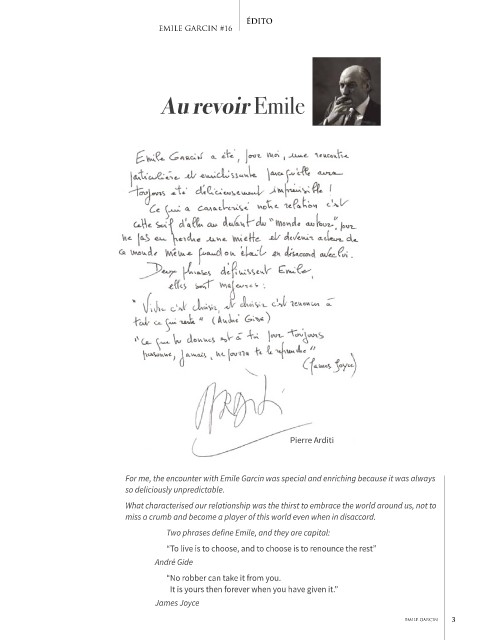 EMILE GARCIN #16
ÉDITO
Au revoir Emile
Emile Garcin a été, pour moi, une rencontre
particulière et enrichissante parce qu'elle aura
toujours été délicieusement imprévisible !
Ce qui a caractérisé notre relation c'est
cette soif d'aller au devant du "monde autour", pour
ne pas en perdre une miette et devenir acteur de
ce monde même quand on était en désaccord avec lui.
Deux phrases définissent Emile,
elles sont majeures :
"Vivre c'est choisir, et choisir c'est renoncer à
tout ce qui reste" (André Gide)
"Ce que tu donnes est à toi pour toujours
personne, jamais, ne pourra te le reprendre"
(James Joyce)
Arditi
Pierre Arditi
For me, the encounter with Emile Garcin was special and enriching because it was always
so deliciously unpredictable.
What characterised our relationship was the thirst to embrace the world around us, not to
miss a crumb and become a player of this world even when in disaccord.
Two phrases define Emile, and they are capital:
“To live is to choose, and to choose is to renounce the rest”
André Gide
“No robber can take it from you.
It is yours then forever when you have given it.”
James Joyce
EMILE GARCIN
3